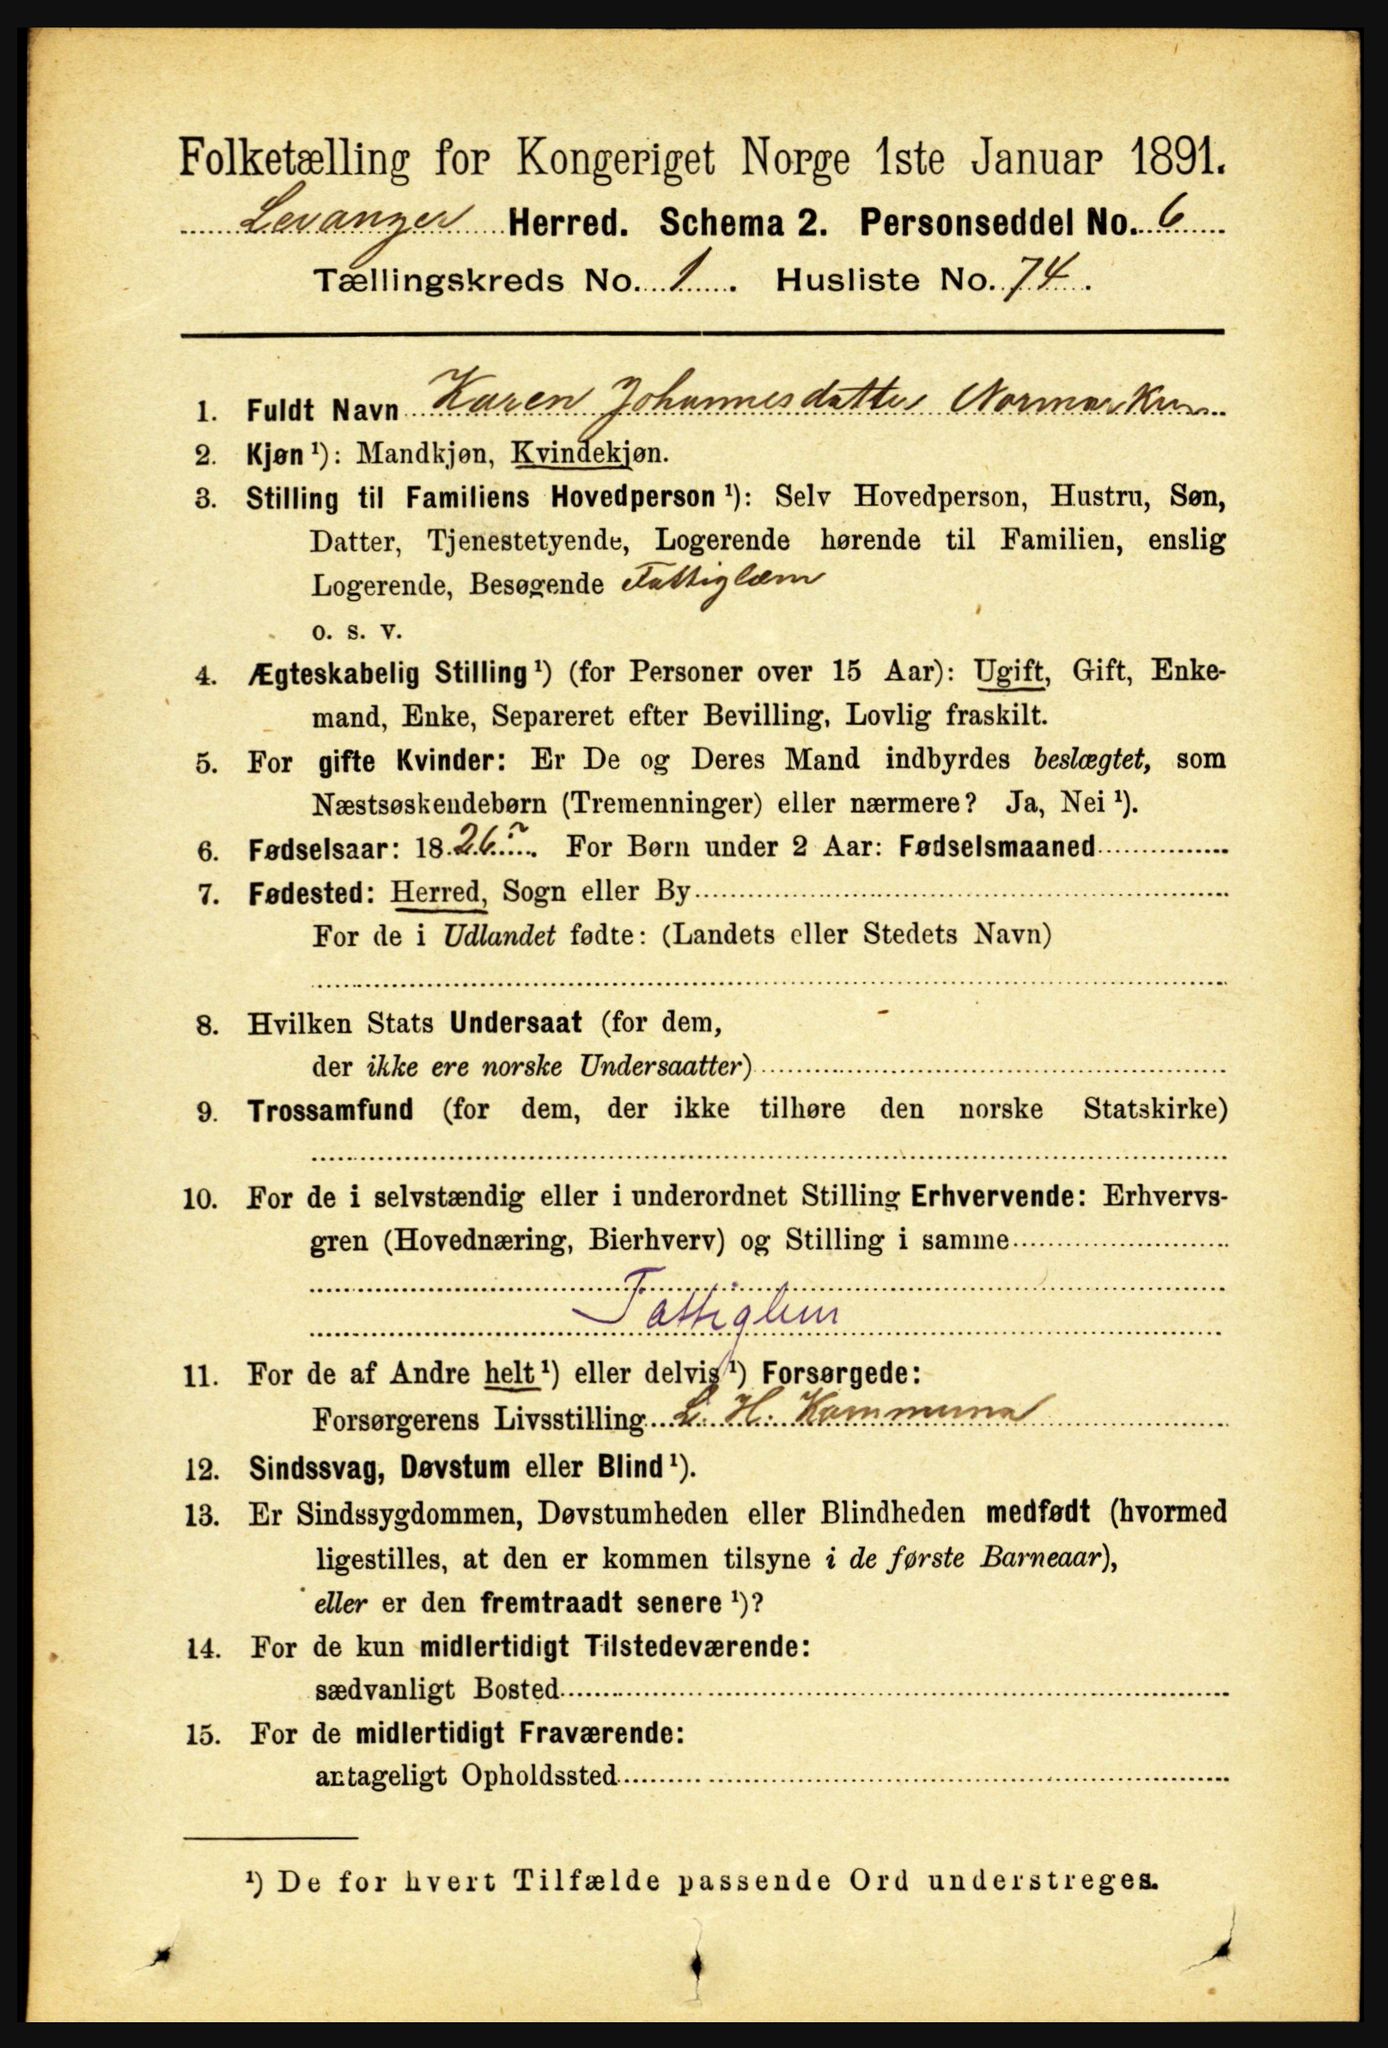 Folketælling for Kongeriget Norge 1ste Januar 1891.
Levanger Herred. Schema 2. Personseddel No. 6
Tællingskreds No. 1. Husliste No. 74.
1. Fuldt Navn Karen Johannesdatter
2. Kjøn ¹): Mandkjøn, Kvindekjøn.
3. Stilling til Familiens Hovedperson ¹): Selv Hovedperson, Hustru, Søn,
Datter, Tjenestetyende, Logerende hørende til Familien, enslig
Logerende, Besøgende Fattiglæm
o. s. v.
4. Ægteskabelig Stilling ¹) (for Personer over 15 Aar): Ugift, Gift, Enke-
mand, Enke, Separeret efter Bevilling, Lovlig fraskilt.
5. For gifte Kvinder: Er De og Deres Mand indbyrdes beslægtet, som
Næstsøskendebørn (Tremenninger) eller nærmere? Ja, Nei ¹).
6. Fødselsaar: 1826. For Børn under 2 Aar: Fødselsmaaned
7. Fødested: Herred, Sogn eller By
For de i Udlandet fødte: (Landets eller Stedets Navn)
8. Hvilken Stats Undersaat (for dem,
der ikke ere norske Undersaatter)
9. Trossamfund (for dem, der ikke tilhøre den norske Statskirke)
10. For de i selvstændig eller i underordnet Stilling Erhvervende: Erhvervs-
gren (Hovednæring, Bierhverv) og Stilling i samme
Fattiglem
11. For de af Andre helt ¹) eller delvis ¹) Forsørgede:
Forsørgerens Livsstilling L. H. Kommune
12. Sindssvag, Døvstum eller Blind ¹).
13. Er Sindssygdommen, Døvstumheden eller Blindheden medfødt (hvormed
ligestilles, at den er kommen tilsyne i de første Barneaar),
eller er den fremtraadt senere ¹)?
14. For de kun midlertidigt Tilstedeværende:
sædvanligt Bosted
15. For de midlertidigt Fraværende:
antageligt Opholdssted
¹) De for hvert Tilfælde passende Ord understreges.